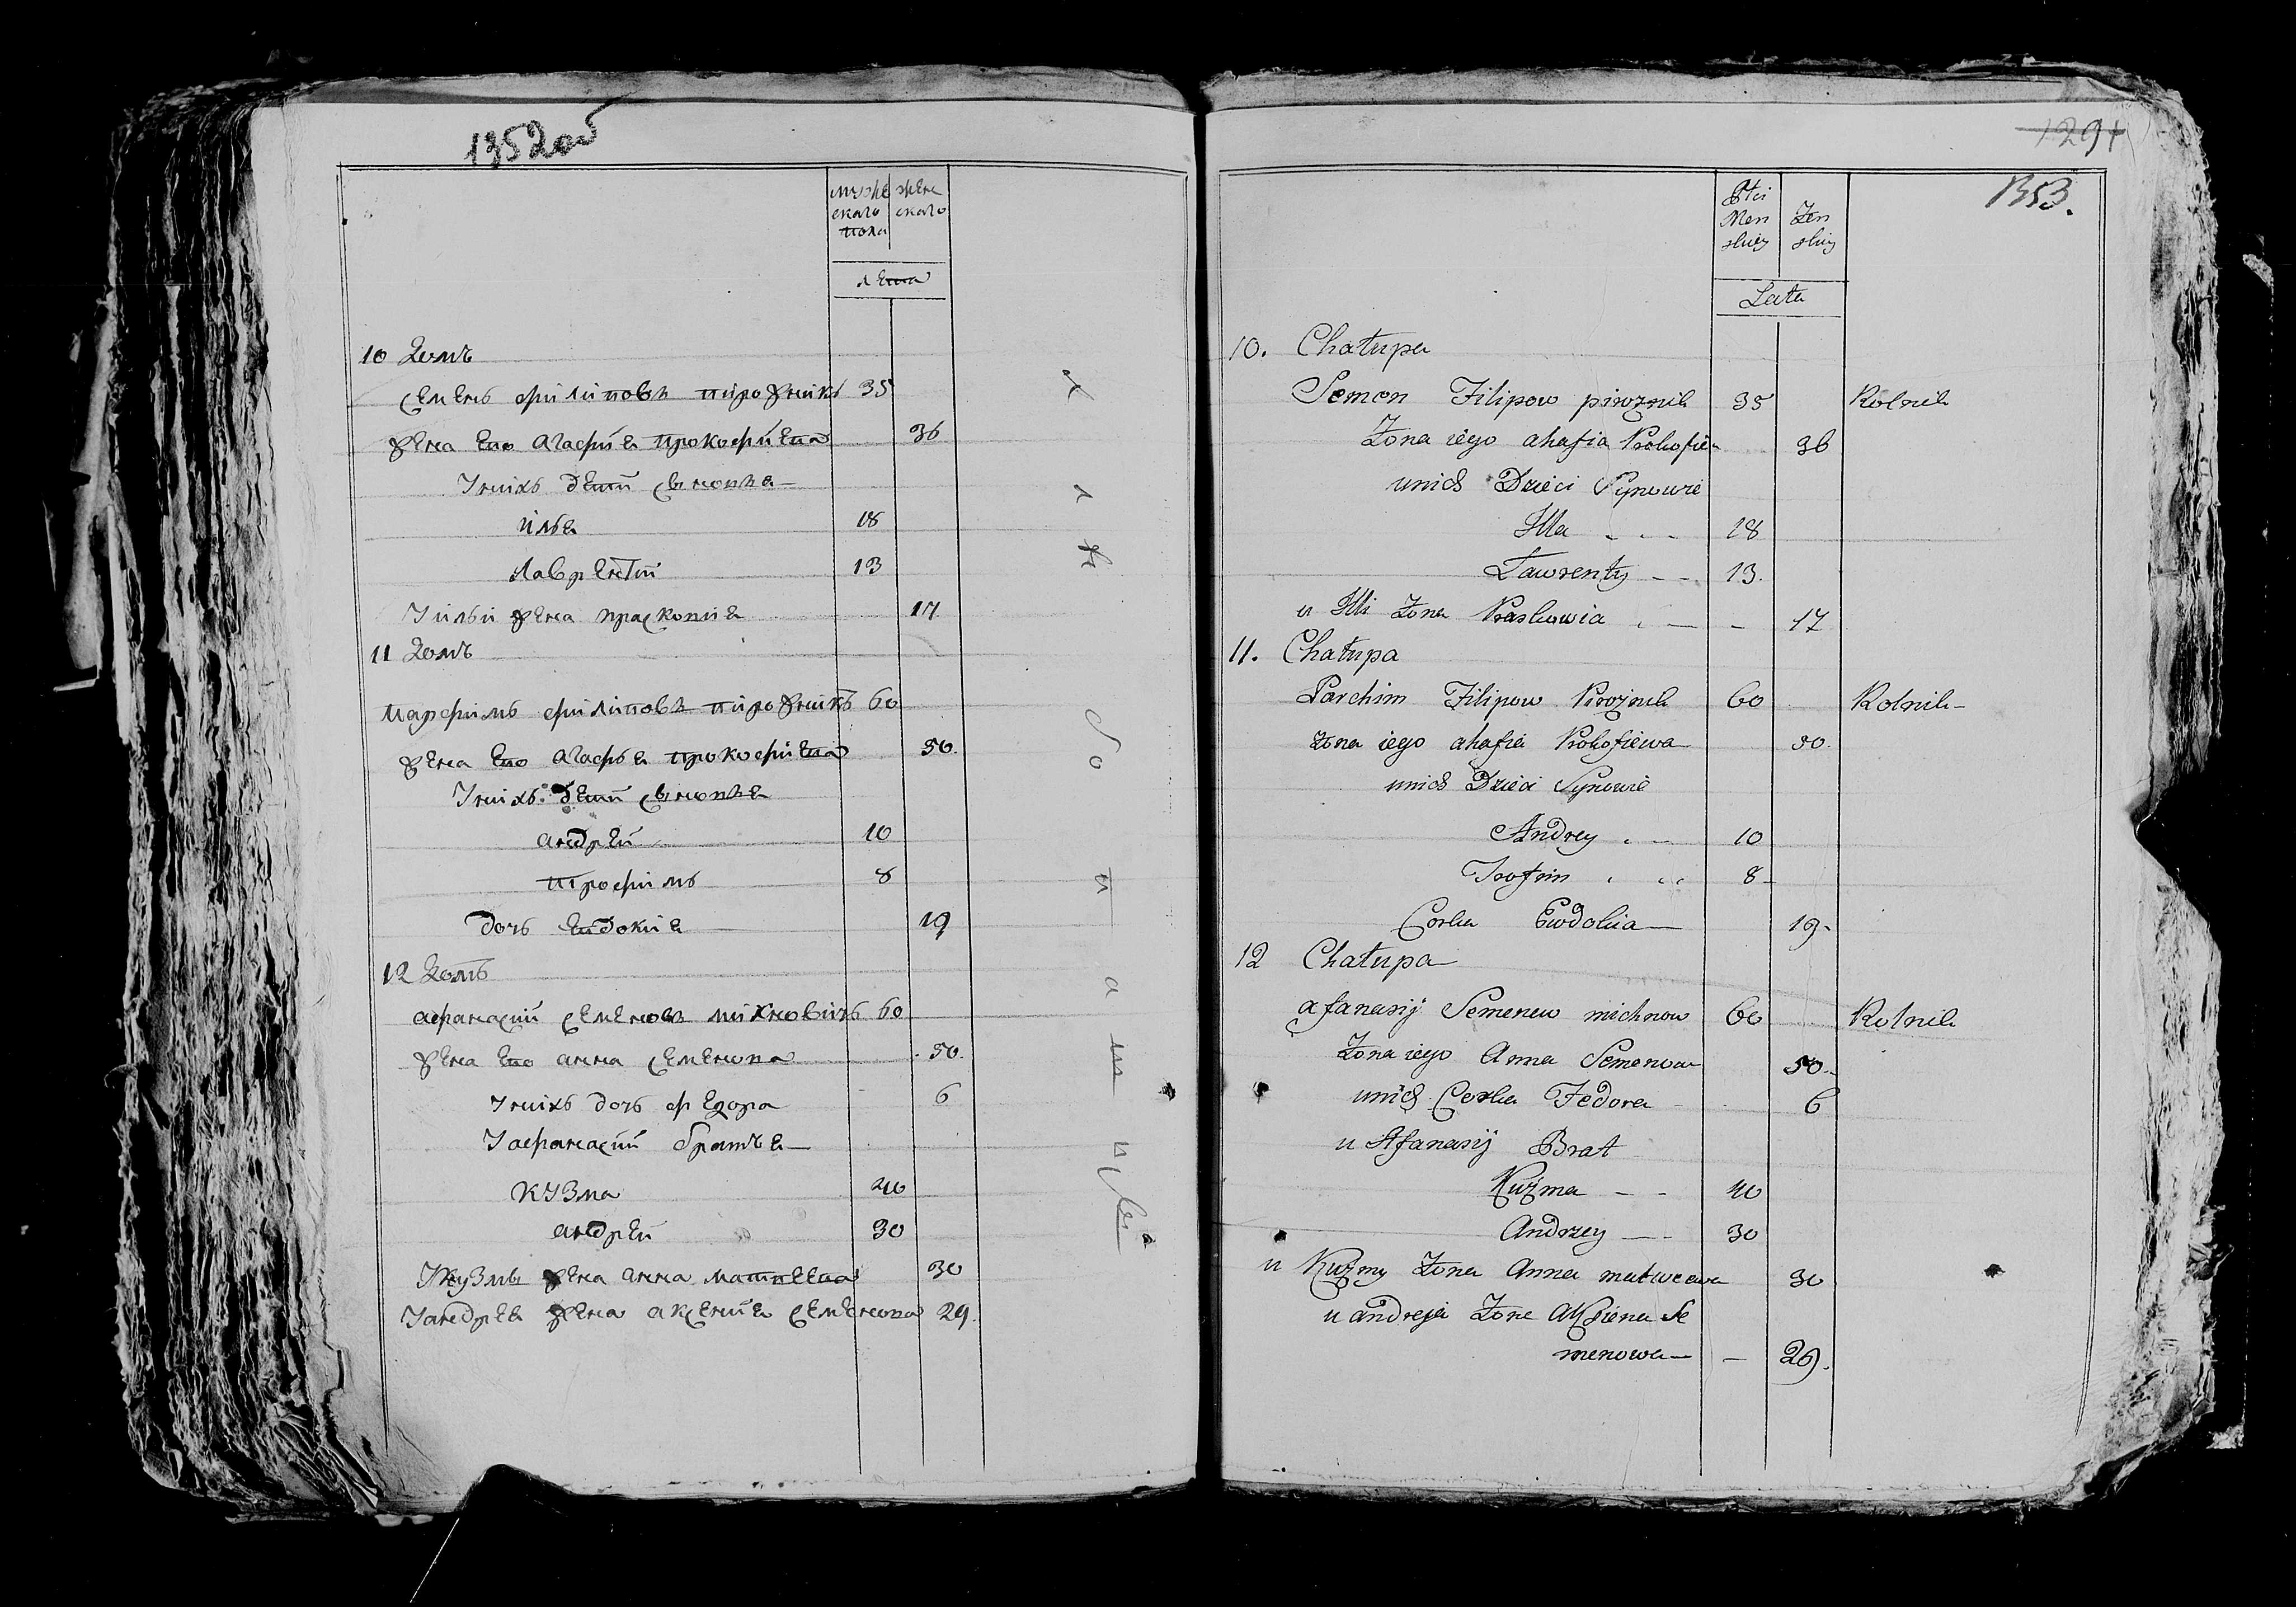 1352ой
муже
скаго
пола
жен
скаго
лета
10 Домъ
Семенъ филиповъ пирожникъ 35
жена ево агафия прокофиева 36
У нихъ дети сыновья
илья 18
Лаврентий 13
У ильи жена прасковия 17
11 Домъ
Парфимъ филиповъ пирожникъ 60
жена ево агафья прокофиева 50.
У нихъ дети сыновья
андрей 10
трофимъ 8
дочь евдокия 19
12 Домъ
афанасий семеновъ михновичъ 60
жена ево анна семенова 50.
У нихъ дочь федора 6
У афанасий братья
Кузма 40
андрей 30
У Кузмы жена анна матвеева 30
У андрея жена аксения семенова 29.
х л ѣ б о п а ш ц ы
1294
1353.
Płci
Men
skiey
Żen
skiey
Lata
10. Chałupa
Semon Filipow pirożnik 35 Rolnik
Żona iego ahafia Prokofie 36
unich Dzieci Synowie
Illa 18
Ławrenty 13.
u Illi Żona Praskowia 17
11. Chałupa
Parchim Filipow Pirożnik 60 Rolnik
żona iego ahafia Prokofiewa 50.
unich Dzieci Synowie
Andrey 10
Trofim 8
Corka Ewdokia 19.
12 Chałupa
afanasij Semenow michnow 60 Rolnik
Żona iego Anna Semenow 50.
unich Corka Fedora 6
u Afanasij Brat
Kuźma 40
Andrzey 30
u Kuźmy Żona Anna matweewa 30
u andreja Żona Axsiena Se
menowa 29.